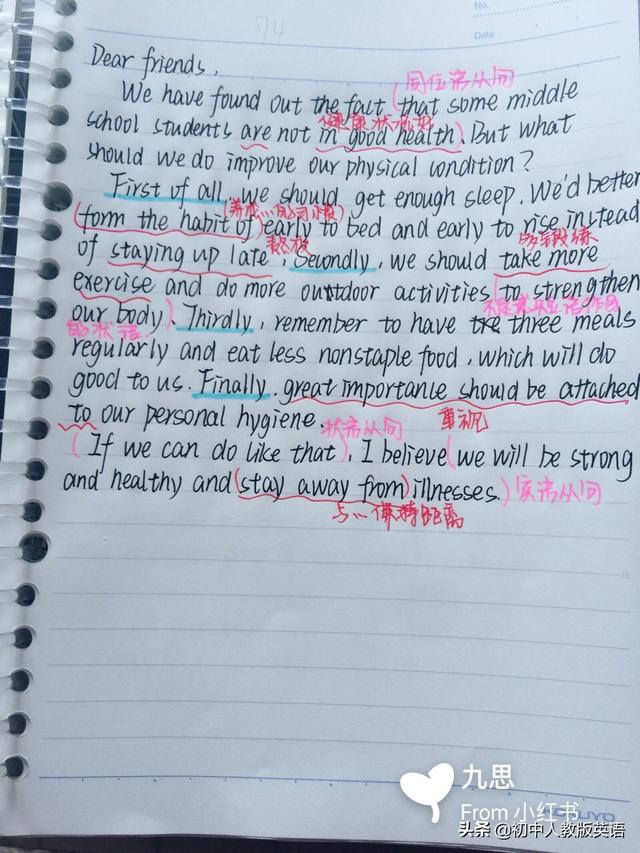 74
No.
Date
Dear friends,
同位语从句
We have found out the fact (that some middle
健康状况好
school students are not in good health). But what
should we do improve our physical condition?
First of all, we should get enough sleep. We'd better
(养成…的习惯)
(form the habit of) early to bed and early to rise instead
熬夜
多锻炼
of staying up late. Secondly, we should take more
exercise and do more outdoor activities (to strengthen
不定式短语作目
our body). Thirdly, remember to have the three meals
的状语.
regularly and eat less nonstaple food, which will do
good to us. Finally, great importance should be attached
to our personal hygiene.
重视
状语从句
(If we can do like that), I believe (we will be strong
and healthy and (stay away from) illnesses.) 宾语从句
与…保持距离
九思
From 小红书
头条 @初中人教版英语